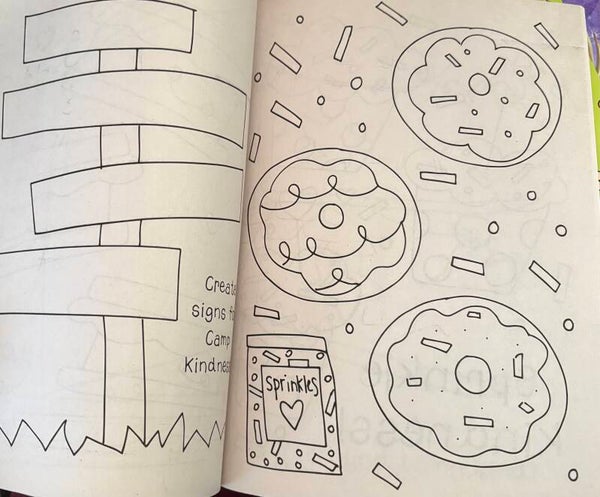 Create
signs
Camp
Kindness
sprinkles